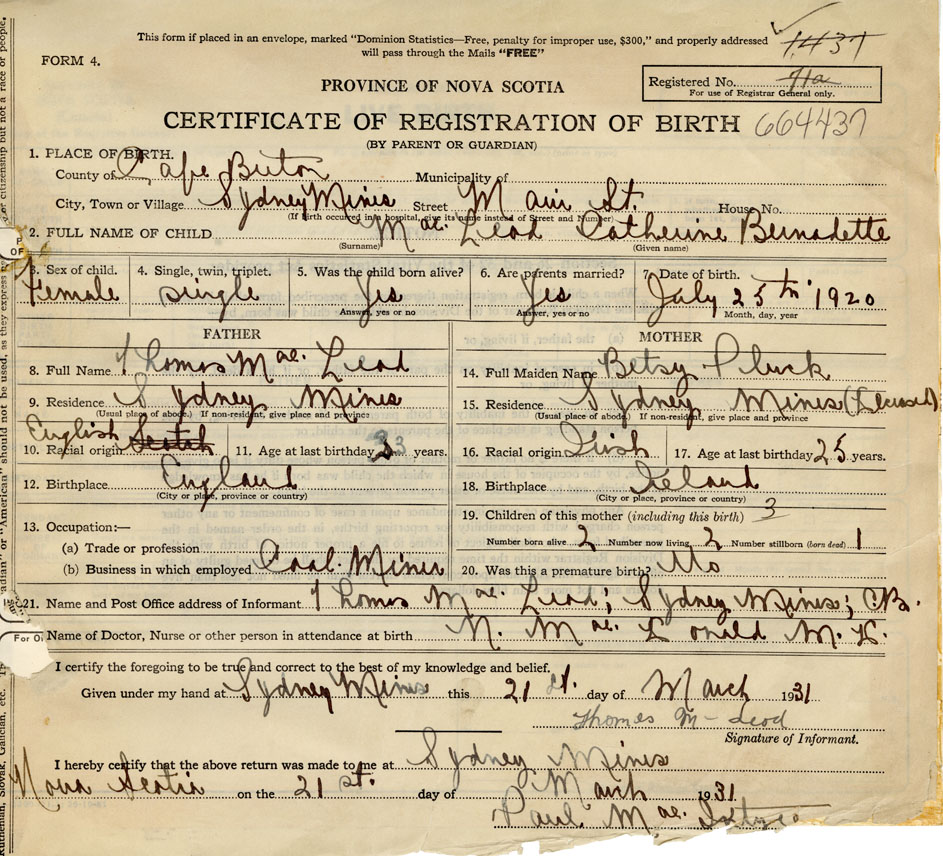 This form if placed in an envelope, marked "Dominion Statistics—Free, penalty for improper use, $300," and properly addressed
will pass through the Mails "FREE"
1437
FORM 4.
PROVINCE OF NOVA SCOTIA
Registered No. 71a
For use of Registrar General only.
CERTIFICATE OF REGISTRATION OF BIRTH 664437
(BY PARENT OR GUARDIAN)
1. PLACE OF BIRTH.
County of Cape Breton Municipality of
City, Town or Village Sydney Mines Street Main St. House No.
(If birth occurred in a hospital, give its name instead of Street and Number)
2. FULL NAME OF CHILD Mac Leod Catherine Bernadette
(Surname) (Given name)
3. Sex of child. 4. Single, twin, triplet. 5. Was the child born alive? 6. Are parents married? 7. Date of birth.
Female single Yes Yes July 25th 1920
Answer, yes or no Answer, yes or no Month, day, year
FATHER MOTHER
8. Full Name Thomas Mac. Leod 14. Full Maiden Name Betsy Pluck
9. Residence Sydney Mines 15. Residence Sydney Mines (Deceased)
(Usual place of above.) If non-resident, give place and province (Usual place of above.) If non-resident, give place and province
English
10. Racial origin Scotch 11. Age at last birthday 33 years. 16. Racial origin Irish 17. Age at last birthday 25 years.
12. Birthplace England 18. Birthplace Ireland
(City or place, province or country) (City or place, province or country)
19. Children of this mother (including this birth) 3
13. Occupation:—
Number born alive 2 Number now living 2 Number stillborn (born dead) 1
(a) Trade or profession
(b) Business in which employed Coal Miner 20. Was this a premature birth? No
21. Name and Post Office address of Informant Thomas Mac. Leod; Sydney Mines; C.B.
Name of Doctor, Nurse or other person in attendance at birth Mac
I certify the foregoing to be true and correct to the best of my knowledge and belief.
Given under my hand at Sydney Mines this 21st. day of March 1931
Thomas M- Leod
Signature of Informant.
I hereby certify that the above return was made to me at Sydney Mines
Nova Scotia on the 21st. day of March 1931
Paul Mac